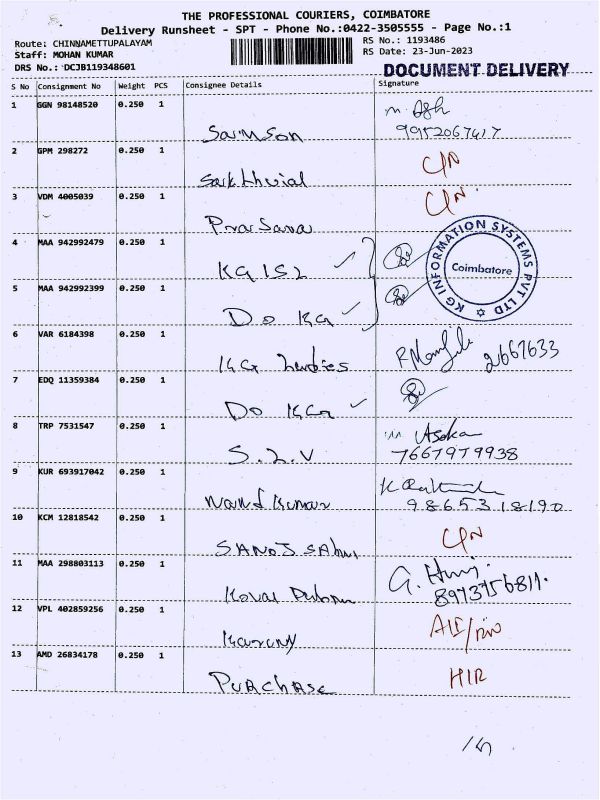 THE PROFESSIONAL COURIERS, COIMBATORE
Delivery Runsheet - SPT - Phone No.:0422-3505555 - Page No.:1
Route: CHINNAMETTUPALAYAM RS No.: 1193486
Staff: MOHAN KUMAR RS Date: 23-Jun-2023
DRS No.: DCJB119348601 DOCUMENT DELIVERY
S No Consignment No Weight PCS Consignee Details Signature
1 GGN 98148520 0.250 1
Samson 9952067417
2 GPM 298272 0.250 1 C/N
3 VDM 4005039 0.250 1 C/N
4 MAA 942992479 0.250 1
KGISL
KG INFORMATION SYSTEMS PVT LTD
Coimbatore
5 MAA 942992399 0.250 1
Do KG
6 VAR 6184398 0.250 1
KG 2667633
7 EDQ 11359384 0.250 1
Do KG
8 TRP 7531547 0.250 1
Asoka
S.L.V 7667979938
9 KUR 693917042 0.250 1
Nand Kumar 9865318190
10 KCM 12818542 0.250 1 C/N
11 MAA 298803113 0.250 1
Kovai 8973756811
12 VPL 402859256 0.250 1
13 AMD 26834178 0.250 1
Purchase